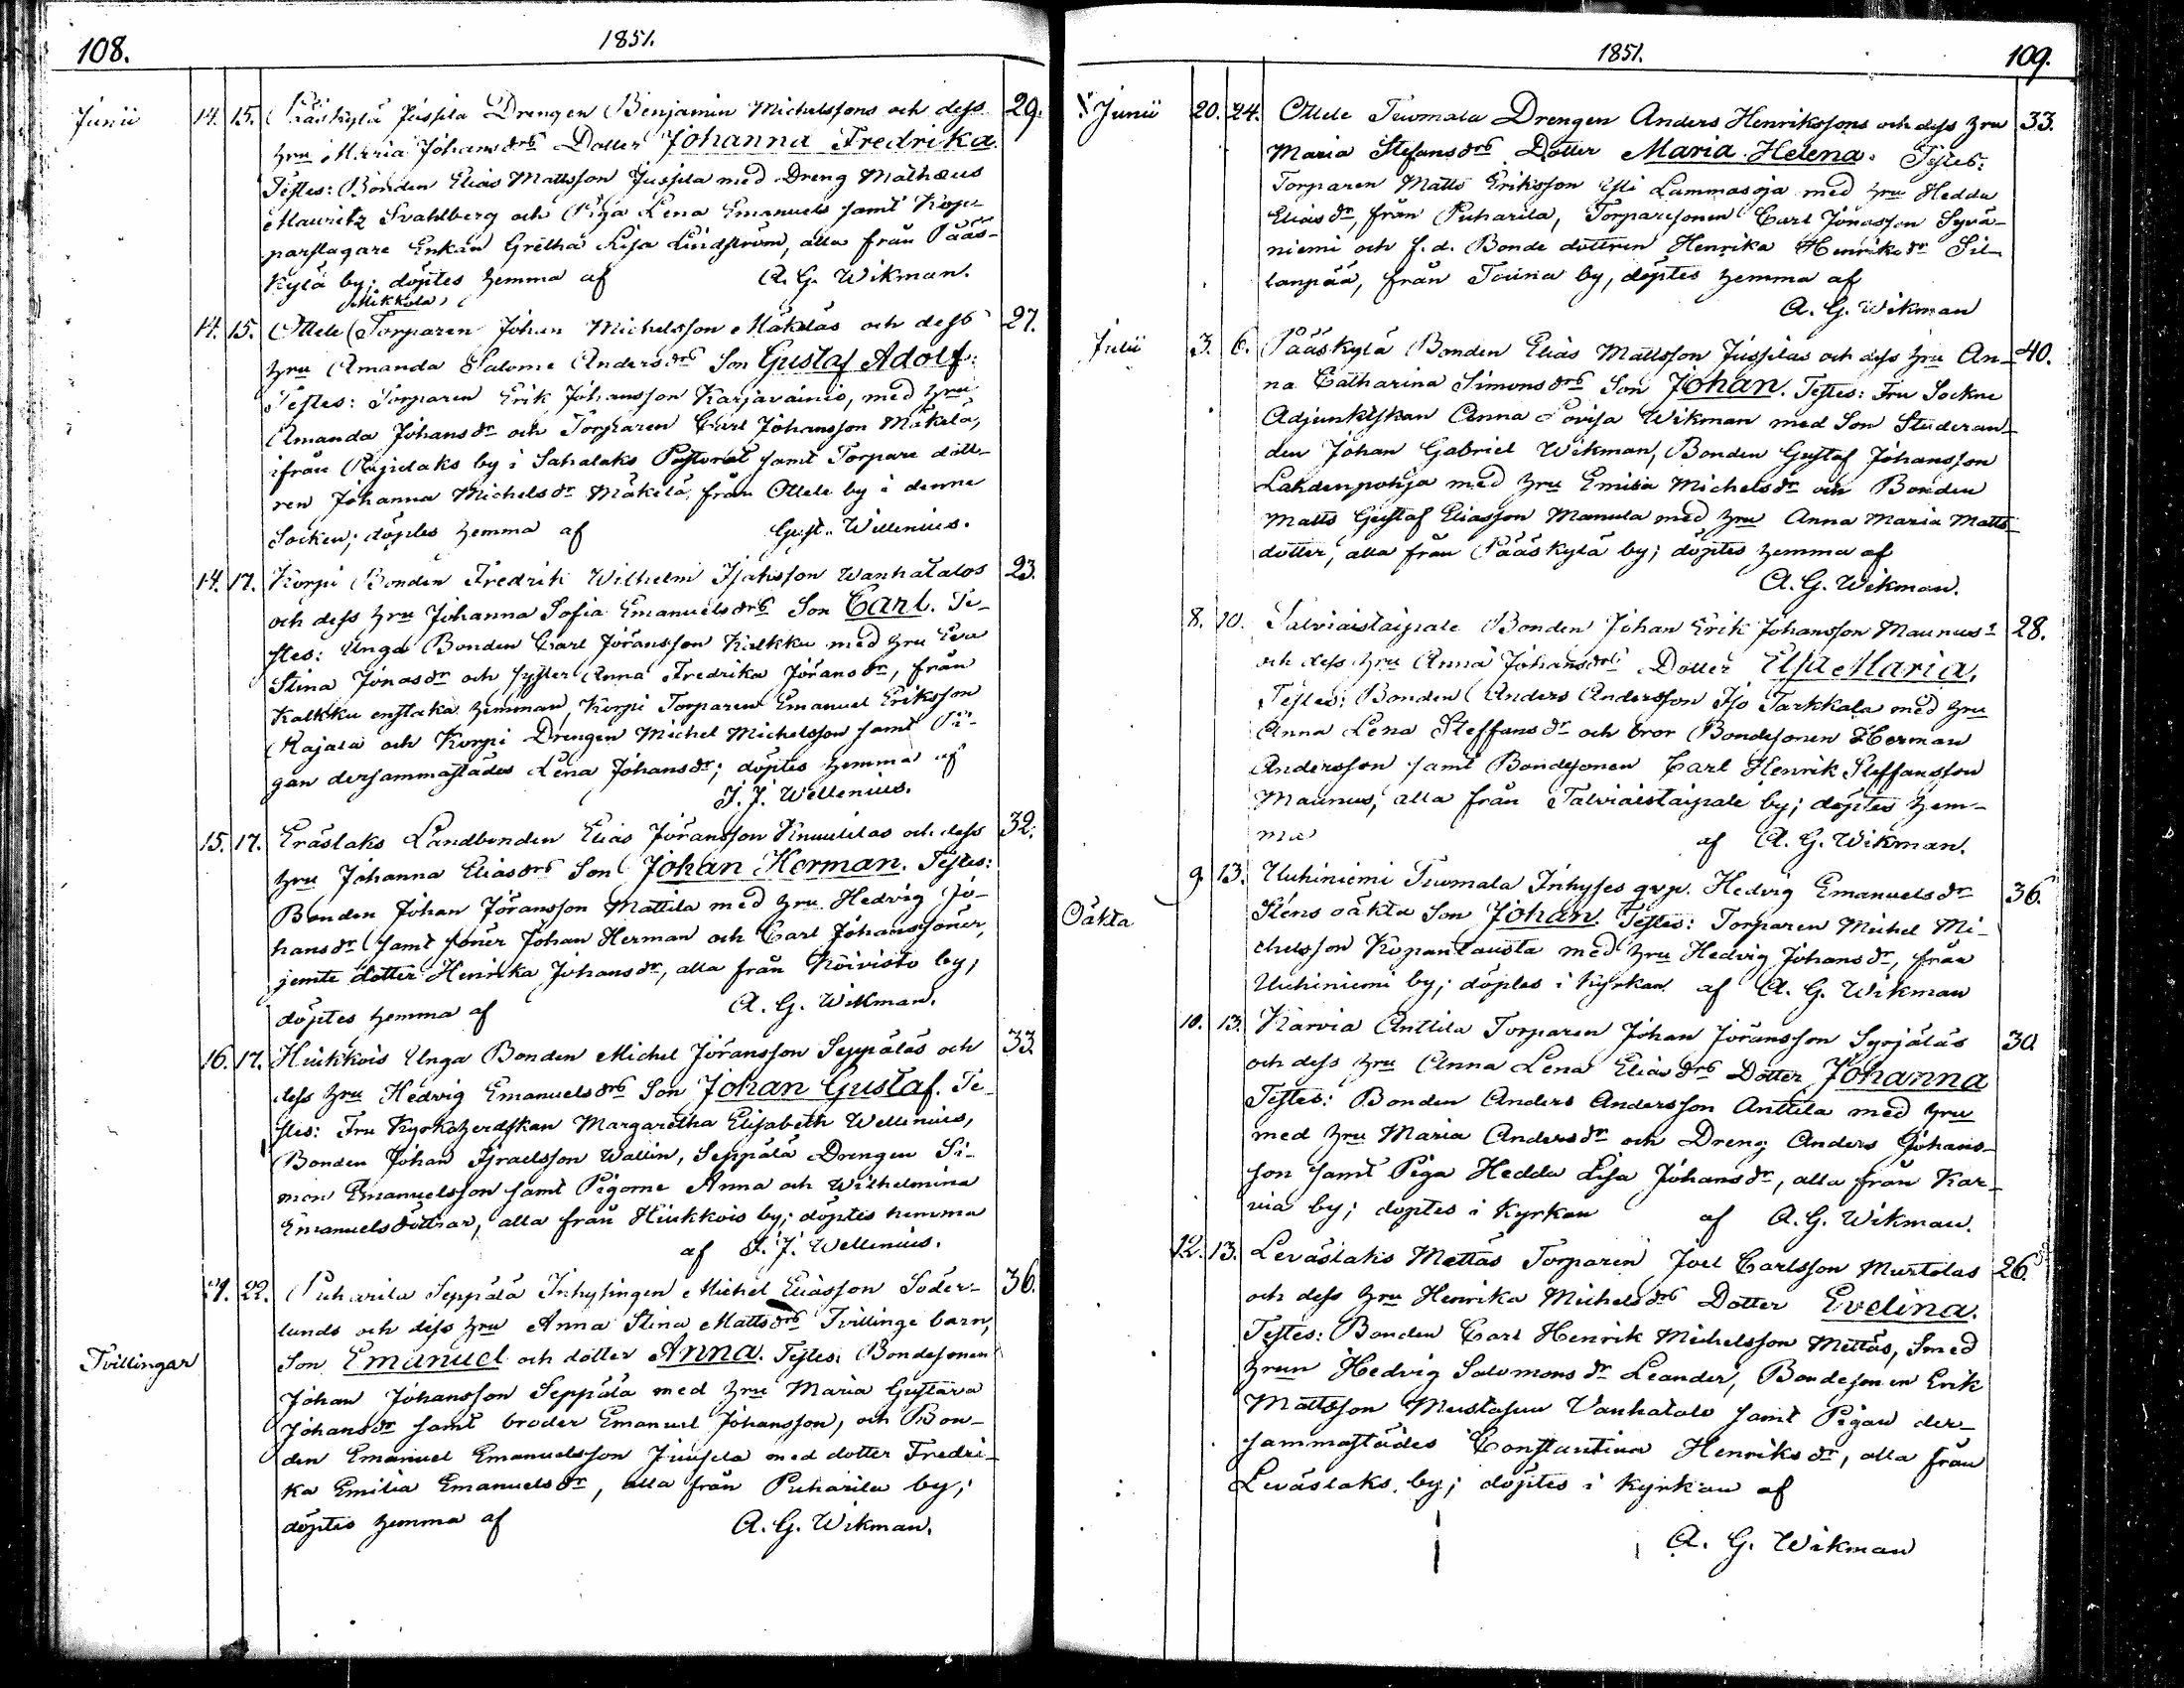 108.
1851.
Junii 14. 15. Pääskylä Jussila Drengen Benjamin Michelssons och dess 29.
hru Maria Johansdrs Dotter Johanna Fredrika.
Testes: Bonden Elias Mattsson Jussila med Dreng Mathæus
Mauritz Svahlberg och Piga Lena Emanuels samt Kopp-
parslagare Enkan Gretha Lisa Lindström, alla från Pääs-
kylä by; döptes hemma af A. G. Wikman.
Mikkola,
14. 15. Ottele Torparen Johan Michelsson Mäkeläs och dess 27.
hru Amanda Salome Andersdrs Son Gustaf Adolf.
Testes: Torparen Erik Johansson Karjavainio, med hru
Amanda Johansdr och Torparen Carl Johansson Mäkelä,
ifrån Pajulaks by i Sahalaks Pastorat samt Torpare dott-
ren Johanna Michelsdr Mäkelä från Ottele by i denne
Socken; döptes hemma af Gust. Willenius.
14. 17. Korpi Bonden Fredrik Wilhelm Isaksson Wanhatalos 23.
och dess hru Johanna Sofia Emanuelsdrs Son Carl. Te-
stes: Unga Bonden Carl Jöransson Kalkku med hru Eva
Stina Jonasdr och syster Anna Fredrika Jöransdr, från
Kalkku enstaka hemman, Korpi Torparen Emanuel Eriksson
Rajala och Korpi Drengen Michel Michelsson samt Pi-
gan dersammastädes Lena Johansdr; döptes hemma af
J. J. Wellenius.
15. 17. Eräslaks Landbonden Elias Jöransson Knuutilas och dess 32.
hru Johanna Eliasdrs Son Johan Herman. Testes:
Bonden Johan Jöransson Mattila med hru Hedvig Jo-
hansdr samt söner Johan Herman och Carl Johanssöner,
jemte dotter Henrika Johansdr, alla från Koivisto by;
döptes hemma af A. G. Wikman.
16. 17. Huikkois Unga Bonden Michel Jöransson Seppäläs och 33.
dess hru Hedvig Emanuelsdrs Son Johan Gustaf. Te-
stes: Fru Kyrkoherdskan Margaretha Elisabeth Wellenius,
Bonden Johan Israelsson Wallin, Seppälä Drengen Si-
mon Emanuelsson samt Pigorne Anna och Wilhelmina
Emanuelsdöttrar, alla från Huikkois by; döptes hemma
af J. J. Wellenius.
21. 22. Puharila Seppälä Inhysingen Michel Eliasson Söder- 36.
lunds och dess hru Anna Stina Mattsdrs Tvillinge barn,
Tvillingar Son Emanuel och dotter Anna. Testes: Bondesonen
Johan Johansson Seppälä med hru Maria Gustava
Johansdr samt broder Emanuel Johansson, och Bon-
den Emanuel Emanuelsson Juusela med dotter Fredri-
ka Emilia Emanuelsdr, alla från Puharila by;
döptes hemma af A. G. Wikman.
1851.
109.
Junii 20. 24. Ottele Tuomala Drengen Anders Henrikssons och dess hru 33.
Maria Stefansdrs Dotter Maria Helena. Testes:
Torparen Matts Eriksson Lammasoja med hru Hedda
Eliasdr, från Puharila, Torparesonen Carl Jonasson Syvä-
niemi och f. d. Bonde dottren Henrika Henriksdr Sil-
lanpää, från Touna by, döptes hemma af
A. G. Wikman
Julii 3. 6. Pääskylä Bonden Elias Mattsson Jussilas och dess hru An- 40.
na Catharina Simonsdrs Son Johan. Testes: Fru Sockne
Adjunktskan Anna Lovisa Wikman med Son Studeran-
den Johan Gabriel Wikman, Bonden Gustaf Johansson
Lahdenpohja med hru Emilia Michelsdr och Bonden
Matts Gustaf Eliasson Manula med hru Anna Maria Matts-
dotter, alla från Pääskylä by; döptes hemma af
A. G. Wikman.
8. 10. Talviaistaipale Bonden Johan Erik Johansson Maunus 28.
och dess hru Anna Johansdrs Dotter Elsa Maria.
Testes: Bonden Anders Andersson Iso Tarkkala med hru
Anna Lena Steffansdr och bror Bondesonen Herman
Andersson samt Bondesonen Carl Henrik Steffansson
Maunus, alla från Talviaistaipale by; döptes hem-
ma af A. G. Wikman.
9. 13. Uuhiniemi Tuomala Inhyses qvp. Hedvig Emanuelsdr 36.
Oäkta Sténs oäkta Son Johan. Testes: Torparen Michel Mi-
chelsson Kopanlausta med hru Hedvig Johansdr, från
Uuhiniemi by; döptes i kyrkan af A. G. Wikman
10. 13. Karvia Anttila Torparen Johan Jöransson Syrjäläs 30.
och dess hru Anna Lena Eliasdrs Dotter Johanna
Testes: Bonden Anders Andersson Anttila med hru
med hru Maria Andersdr och Dreng Anders Johans-
son samt Piga Hedda Lisa Johansdr, alla från Kar-
via by; döptes i Kyrkan af A. G. Wikman.
12. 13. Leväslaks Mettäs Torparen Joel Carlsson Murtolas 26.
och dess hru Henrika Michelsdrs Dotter Evelina.
Testes: Bonden Carl Henrik Michelsson Mettäs, Smed
hrun Hedvig Salomonsdr Leander, Bondesonen Erik
Mattsson Vanhatalo samt Pigan der-
sammastädes Constantina Henriksdr, alla från
Leväslaks by; döptes i kyrkan af
A. G. Wikman